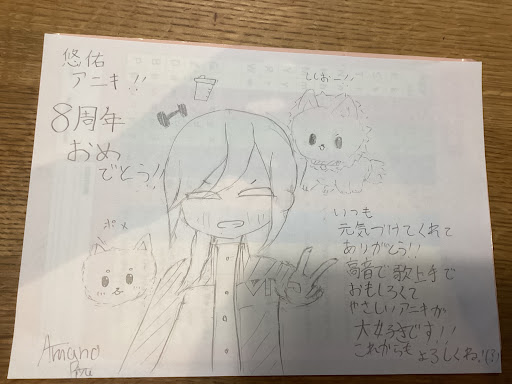 悠佑
アニキ!!
8周年
おめ
でとう!!
ししおこ!!
ポメ
いつも
元気づけてくれて
ありがとう!!
高音で歌上手で
おもしろくて
やさしいアニキが
大好きです!!
これからも よろしくね!
Amano